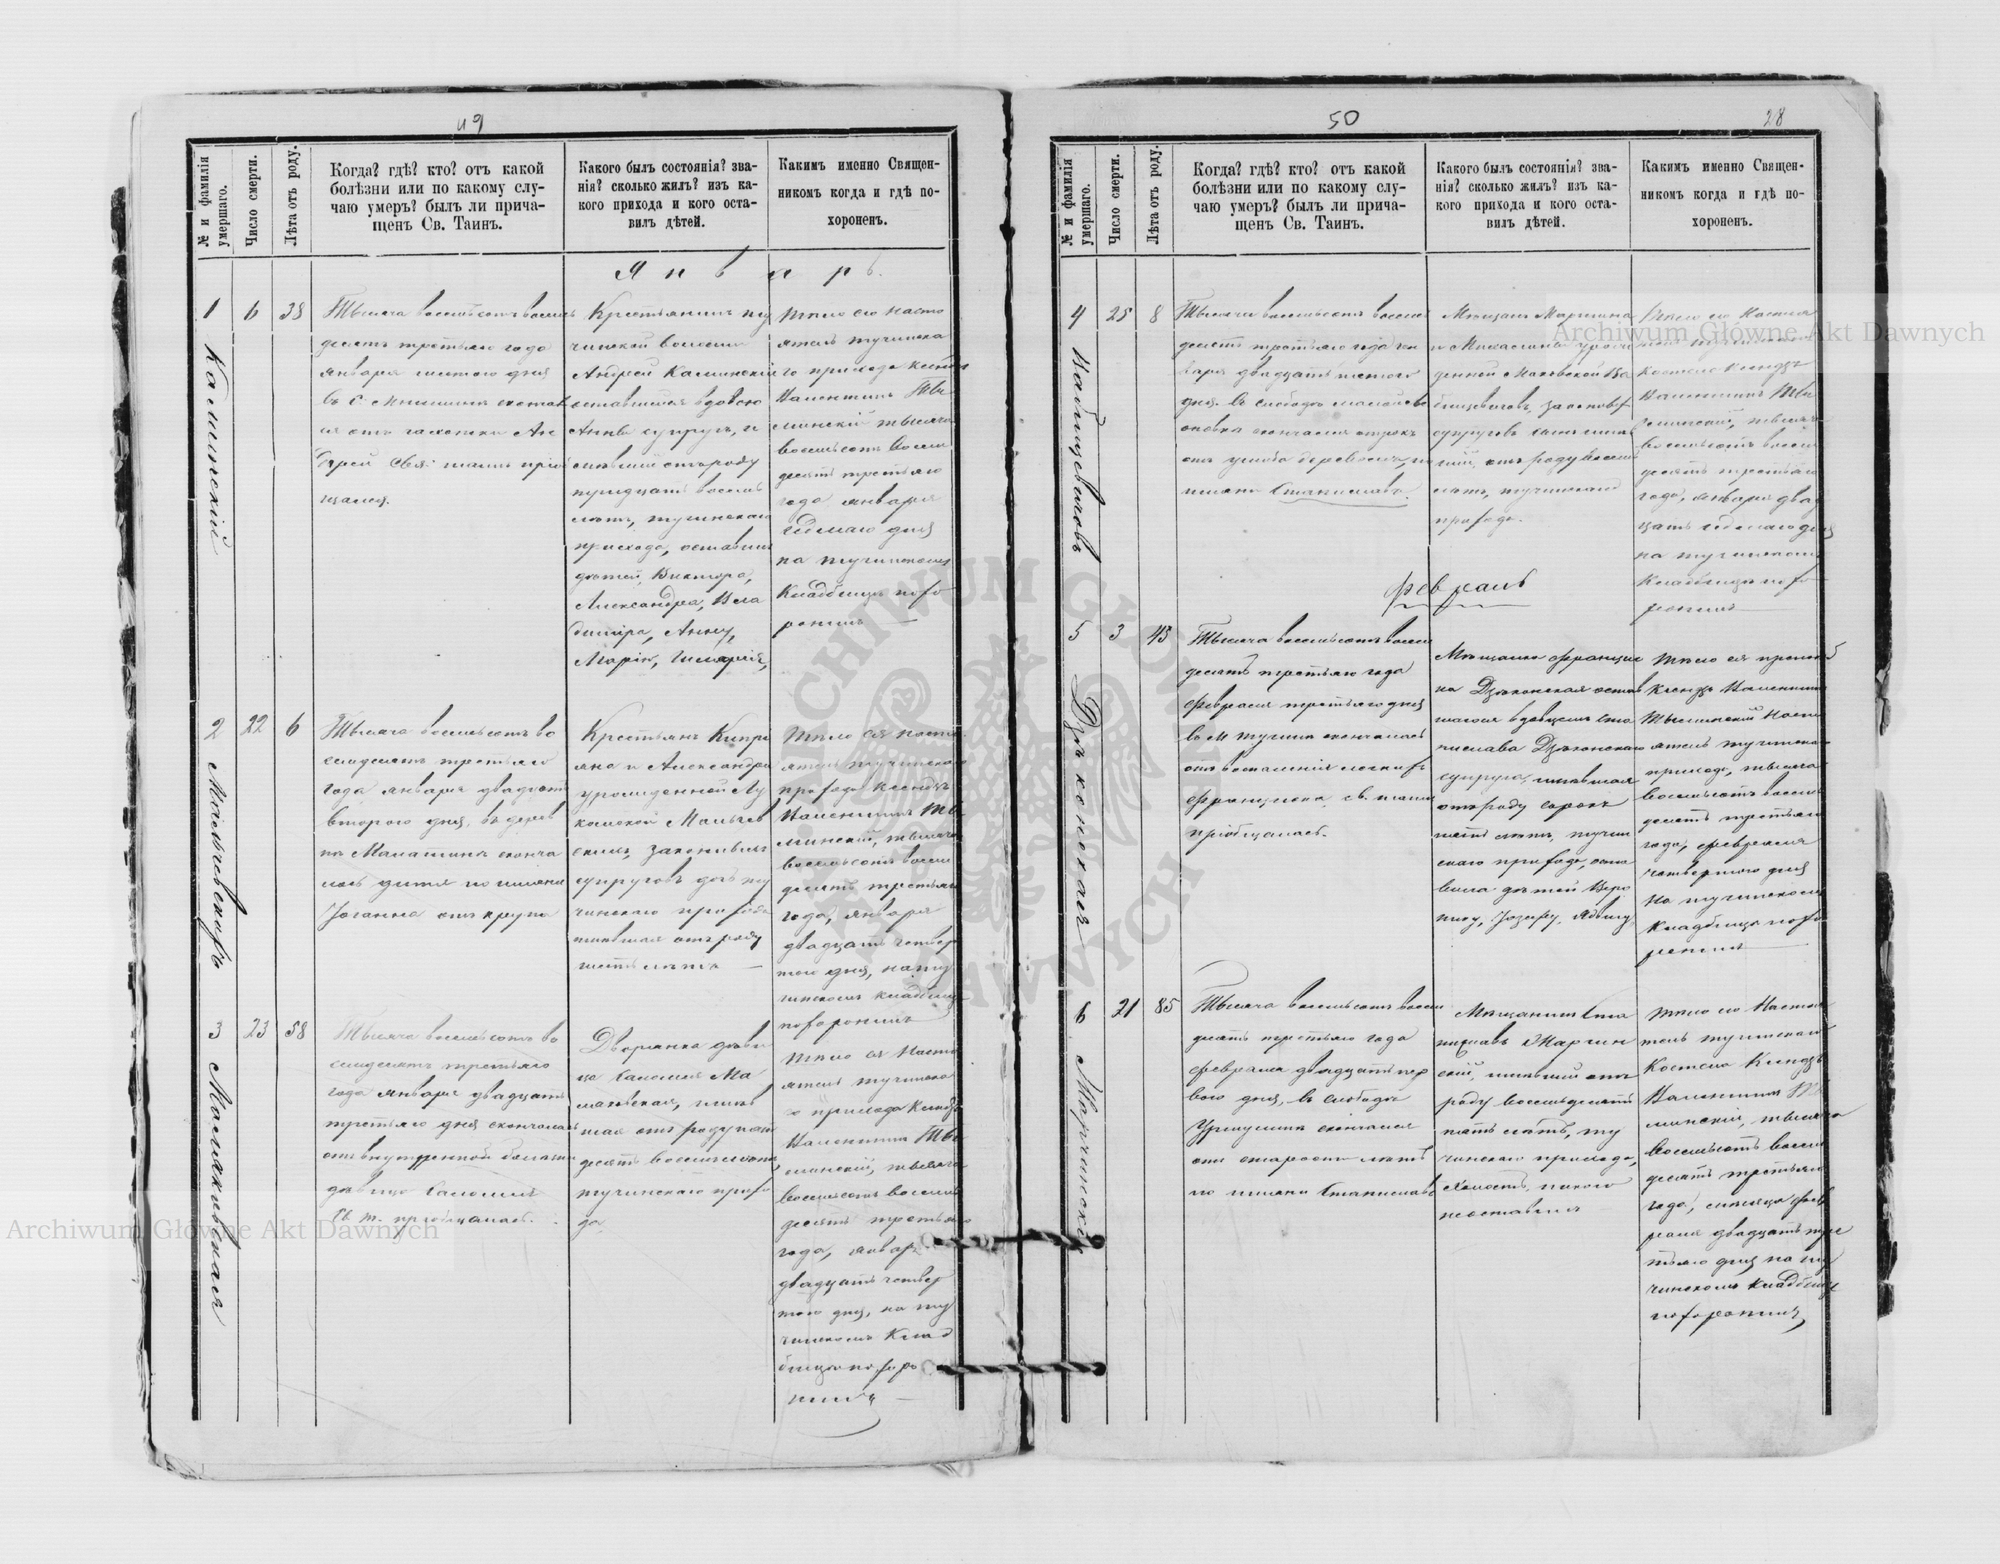 49
№ и фамилія умершаго.
Число смерти.
Лѣта отъ роду.
Когда? гдѣ? кто? отъ какой
болѣзни или по какому слу-
чаю умеръ? былъ ли прича-
щенъ Св. Таинъ.
Какого былъ состоянія? зва-
нія? сколько жилъ? изъ ка-
кого прихода и кого оста-
вилъ дѣтей.
Какимъ именно Священ-
никомъ когда и гдѣ по-
хороненъ.
Январь.
1
Каминскій
6
38
Тысяча восемьсотъ восемь
десятъ третьяго года
января шестого дня
въ с.
отъ чахотки Ан
дрей Свя: таинъ прiоб
щался.
Крестьянинъ ту
чинской волости
Андрей Каминскій
оставшійся вдовою
Анны супругъ,
имѣвшій отъ роду
тридцать восемь
лѣтъ, тучинскаго
прихода, оставилъ
дѣтей, Виктора,
Александра, Вла
димира, Анну,
Марію,
тѣло его насто
ятель тучинска
го прихода Ксендзъ
Валентинъ
минскій тысяча
восемьсотъ восемь
десятъ третьяго
года января
седьмаго дня
на тучинскомъ
Кладбищѣ похо
ронилъ
2
Мальчевскихъ
22
6
Тысяча восемьсотъ во
семдесятъ третьяго
года января двадцать
второго дня, въ дерев
нѣ сконча
лась дитя по имени
Іоанна отъ крупа
Крестьянъ Кипрі
яна и Александры
урожденной Лу
Мальчев
скихъ, законныхъ
супруговъ дочь ту
чинскаго прихода
имѣвшая отъ роду
шесть лѣтъ —
тѣло ея насто
ятель тучинскаго
прихода Ксендзъ
Валентинъ
минскій, тысяча
восемьсотъ восемь
десятъ третьяго
года, января
двадцать четвер
того дня, на ту
чинскомъ кладбищѣ
похоронилъ
3
23
58
Тысяча восемьсотъ во
семдесятъ третьяго
года января двадцать
третьяго дня скончалась
отъ внутренной болѣзни
дѣвица Саломея
Св. т. пріобщалась.
Дворянка дѣви
ца Саломея Ма
имѣв
шая отъ роду пять
десятъ восемь лѣтъ,
тучинскаго прихо
да
тѣло ея насто
ятель тучинска
го прихода Ксендзъ
Валентинъ
минскій, тысяча
восемьсотъ восемь
десятъ третьяго
года, января
двадцать четвер
того дня, на ту
чинскомъ Клад
бищѣ похоро
нилъ
50
28
№ и фамилія умершаго.
Число смерти.
Лѣта отъ роду.
Когда? гдѣ? кто? отъ какой
болѣзни или по какому слу-
чаю умеръ? былъ ли прича-
щенъ Св. Таинъ.
Какого былъ состоянія? зва-
нія? сколько жилъ? изъ ка-
кого прихода и кого оста-
вилъ дѣтей.
Какимъ именно Священ-
никомъ когда и гдѣ по-
хороненъ.
4
25
8
Тысяча восемьсотъ восемь
десятъ третьяго года ян
варя двадцать пятого
дня въ слободѣ
скончался отрокъ
отъ ушиба деревомъ, по
имени Станиславъ.
Мѣщанъ Мартина
и Михалины урож
денной
законныхъ
супруговъ сынъ имѣв
шій отъ роду восемь
лѣтъ, тучинскаго
прихода.
тѣло его Настоя
тель тучинскаго
костела Ксендзъ
Валентинъ
минскій, тысяча
восемьсотъ восемь
десятъ третьяго
года, января двад
цать седьмаго дня
на тучинскомъ
Кладбищѣ похо
ронилъ
Февраль
5
Дзѣконская
3
45
Тысяча восемьсотъ восемь
десятъ третьяго года
февраля третьяго дня
въ м Тучинѣ скончалась
отъ воспаленія легкихъ
Францишка, св. таинъ
пріобщалась.
Мѣщанка Францишка
Дзѣконская остав
шагося вдовцемъ Ста
нислава Дзѣконскаго
супруга, имѣвшая
отъ роду сорокъ
пять лѣтъ, тучин
скаго прихода, оста
вила дѣтей Веро
нику, Іозефу, Ядвигу,
тѣло ея
Ксендзъ Валентинъ
Насто
ятель тучинскаго
прихода, тысяча
восемьсотъ восемь
десятъ третьяго
года, февраля
четвертого дня
на тучинскомъ
Кладбищѣ похо
ронилъ
6
Марчинскій
21
85
Тысяча восемьсотъ восемь
десятъ третьяго года
февраля двадцать пер
вого дня, въ слободѣ
скончался
отъ старости лѣтъ
по имени Станиславъ
Мѣщанинъ Ста
ниславъ Марчин
скій, имѣвшій отъ
роду восемьдесятъ
пять лѣтъ, ту
чинскаго прихода,
холостъ, никого
неоставилъ
тѣло его Настоя
тель тучинскаго
Костела Ксендзъ
Валентинъ
минскій, тысяча
восемьсотъ восемь
десятъ третьяго
года, мѣсяца фев
раля двадцать тре
тьяго дня на ту
чинскомъ кладбищѣ
похоронилъ
Archiwum Główne Akt Dawnych
Archiwum Główne Akt Dawnych
ARCHIWUM GŁÓWNE AKT DAWNYCH